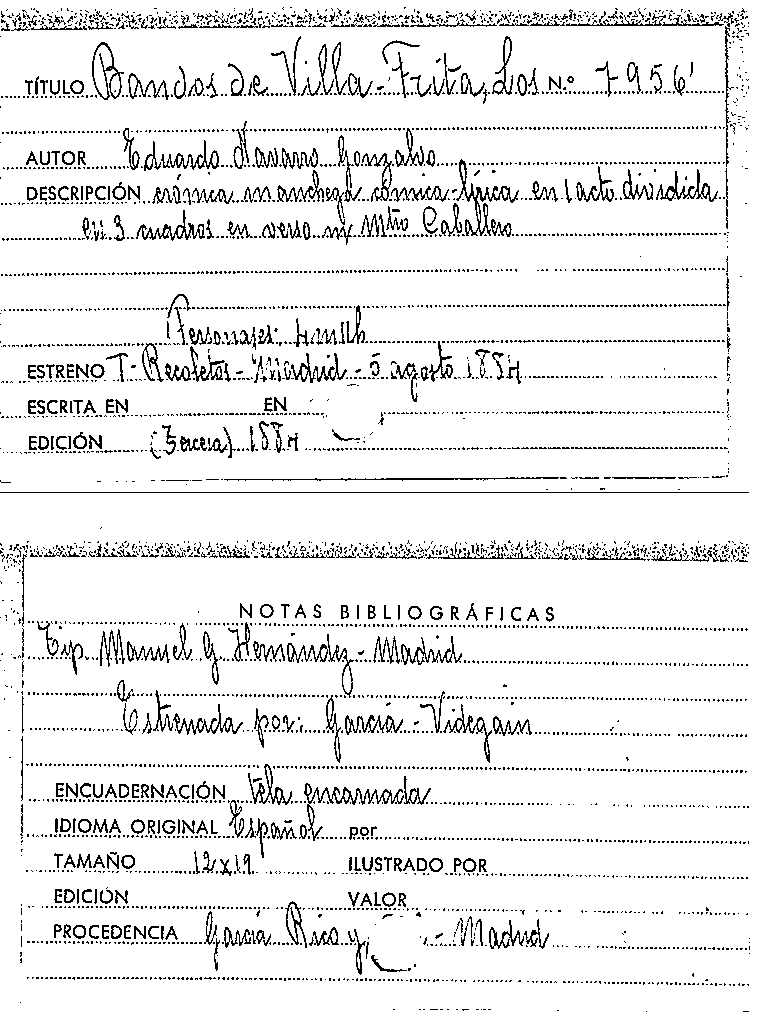 TÍTULO Bandos de Villa-Frita, Los N.º 7956
AUTOR Eduardo Navarro Gonzalvo
DESCRIPCIÓN crónica manchega cómica-lírica en 1 acto dividida
en 3 cuadros en verso m/ Mtro Caballero
Personajes:
ESTRENO T- Recoletos - Madrid - 5 agosto 1884
ESCRITA EN EN
EDICIÓN (Tercera) 1884
NOTAS BIBLIOGRÁFICAS
Tip. Manuel G. Hernández - Madrid
Estrenada por: García - Videgain
ENCUADERNACIÓN tela encarnada
IDIOMA ORIGINAL Español por
TAMAÑO 12x19 ILUSTRADO POR
EDICIÓN VALOR
PROCEDENCIA García Rico y - Madrid